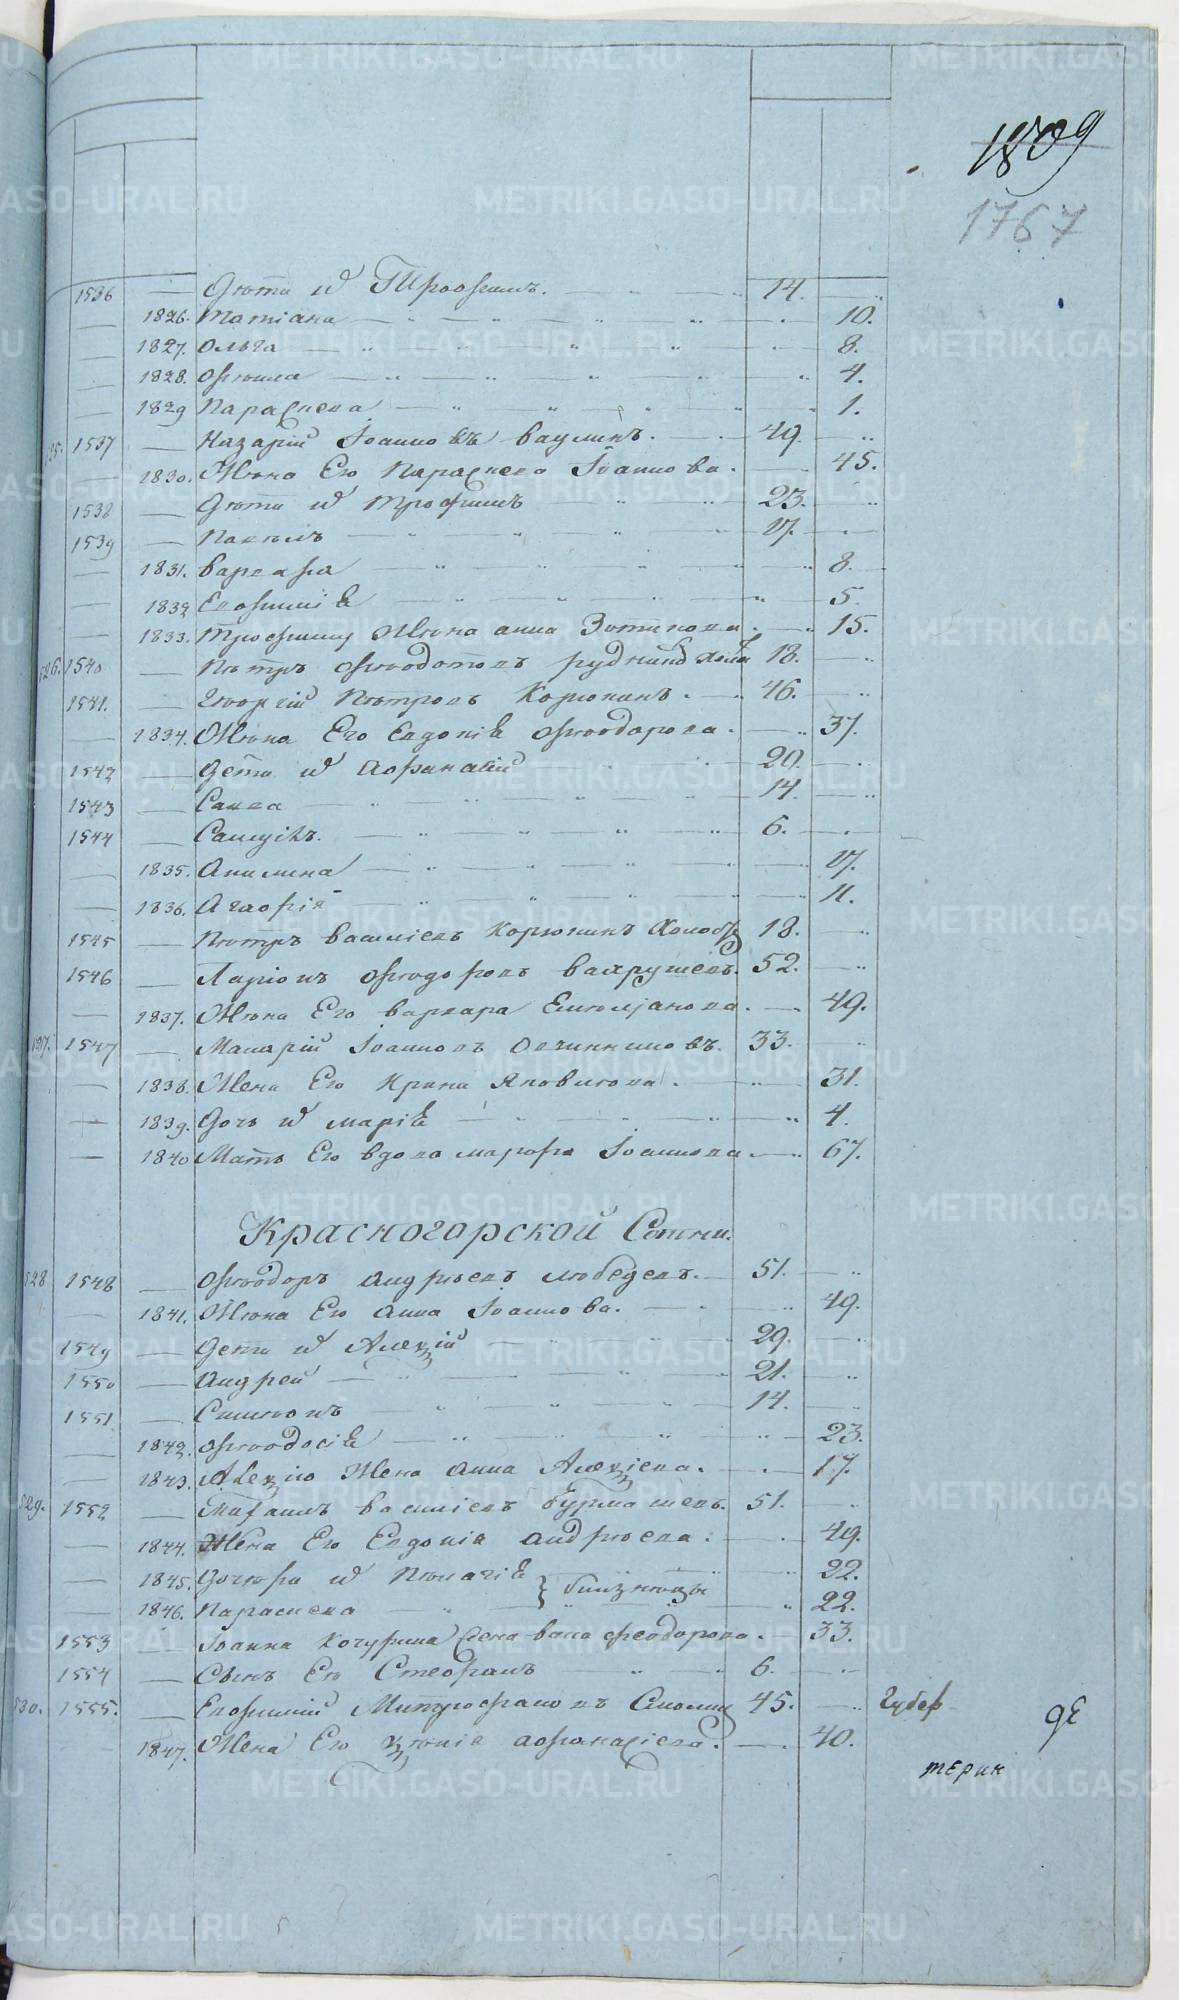 1809
1767
1536 — Дѣти и҃ Трофимъ. 14.
— 1826. Татіана 10.
— 1827. Ольга 8.
— 1828. Фекла 4.
— 1829 Параскева 1.
525. 1537 — Назарій Іоанновъ Ваулинъ. 49.
— 1830. Жена Его Параскева Іоаннова. 45.
1538 — Дѣти и҃ Трофимъ 23.
1539 — Павелъ 17.
— 1831. Варвара 8.
— 1832 Евфимія 5.
— 1833. Трофиму Жена Анна Зотикова 15.
526. 1540 — Петръ Феодотовъ 18.
1541. — Георгій Петровъ Корюкинъ. 46.
— 1834. Жена Его Евдокія Феодорова. 37.
1542 — Дѣти и҃ Афанасій 20.
1543 — Савва 14.
1544 — Самуилъ. 6.
— 1835. Акилина 17.
— 1836. Агафія 11.
1545 — Петръ Василіевъ Корюкинъ Холост 18.
1546 — Ларіонъ Феодоровъ Вахрушевъ. 52.
— 1837. Жена Его Варвара Емеліанова. 49.
527. 1547 — Макарій Іоанновъ Овчинниковъ. 33.
— 1838. Жена Его Ирина Яковлева. 31.
— 1839. Дочь и҃ Марія 4.
— 1840 Мать Его вдова Марфа Іоаннова 67.
Красногорской Сотни.
528 1548 — Феодоръ Андреевъ Лебедевъ. 51.
— 1841. Жена Его Анна Іоаннова. 49.
1549 — Дети и҃ Алеѯій 29.
1550 — Андрей 21.
1551 — Симеонъ 14.
— 1842. Феодосія 23.
— 1843. Алеѯію Жена Анна Алеѯіева. 17.
529. 1552 — Василіевъ Бурмашевъ. 51.
— 1844. Жена Его Евдокія Андреева. 49.
— 1845. Дочери и҃ Пелагія } близнецы 22.
— 1846. Параскева 22.
1553 — Іоанна Кочурина Феодорова. 33.
1554 — Сынъ Ея Стефанъ 6.
530. 1555. — Евфимій Митрофановъ 45. Губер
— 1847. Жена Его Ѯенія Афанасіева. 40.
дЕ
терин
METRIKI.GASO-URAL.RU